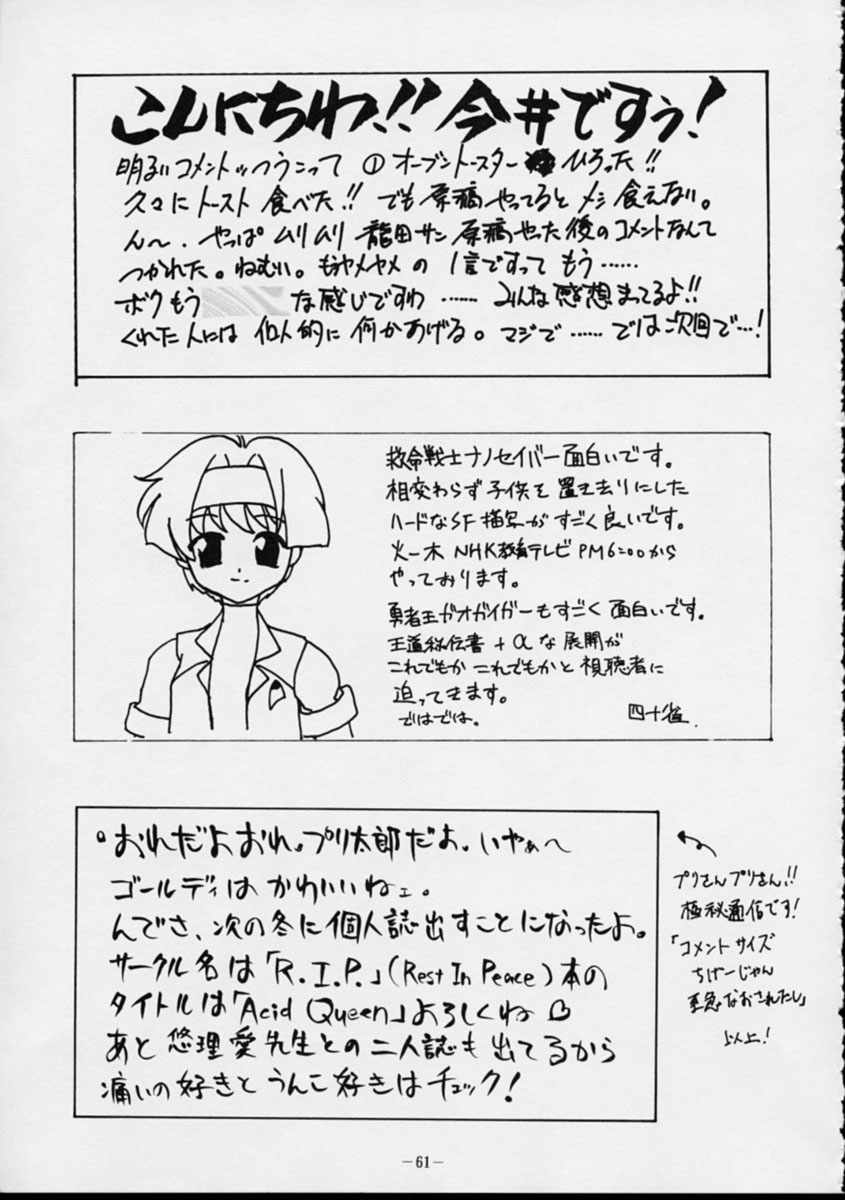 こんにちわ!! 今井ですぅ!
明るいコメントっつうこって ① オーブントースター ひろった!!
久々にトースト食べた!! でも原稿やってるとメシ食えない。
ん〜. やっぱムリムリ 龍田サン原稿やった後のコメントなんて
つかれた。ねむい。もうヤメヤメの1言ですって もう……
ボクもう な感じですわ …… みんな感想まってるよ!!
くれた人には個人的に何かあげる。マジで …… では次回で…!
救命戦士ナノセイバー面白いです。
相変わらず子供を置き去りにした
ハードなSF描写がすごく良いです。
火ー木 NHK教育テレビPM6:00から
やっております。
勇者王ガオガイガーもすごく面白いです。
王道秘伝書+αな展開が
これでもかこれでもかと視聴者に
迫ってきます。
ではでは。
四十雀.
おれだよおれ。プリ太郎だよ。いやぁ〜
ゴールディはかわいいねェ。
んでさ、次の冬に個人誌出すことになったよ。
サークル名は「R.I.P.」(Rest In Peace)本の
タイトルは「Acid Queen」よろしくね♡
あと悠理愛先生との二人誌も出てるから
痛いの好きとうんこ好きはチェック!
プリさんプリさん!!
極秘通信です!
「コメントサイズ
ちげーじゃん
至急なおされたし」
以上!
—61—